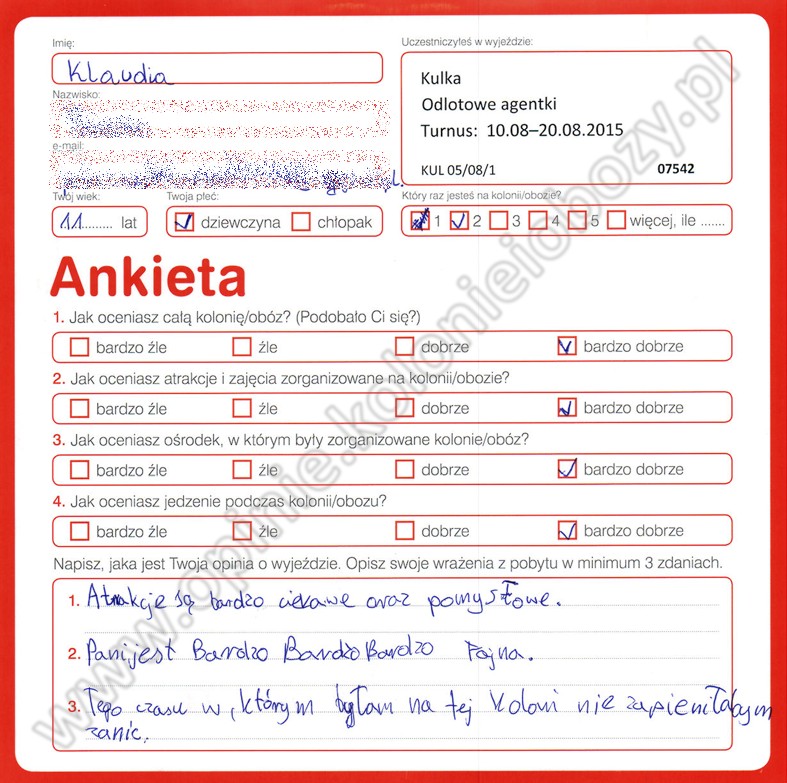 Imię:
Klaudia
Uczestniczyłeś w wyjeździe:
Kulka
Odlotowe agentki
Turnus: 10.08–20.08.2015
KUL 05/08/1 07542
Nazwisko:
e-mail:
Twój wiek:
11 lat
Twoja płeć:
dziewczyna chłopak
Który raz jesteś na kolonii/obozie?
1 2 3 4 5 więcej, ile .......
Ankieta
1. Jak oceniasz całą kolonię/obóz? (Podobało Ci się?)
bardzo źle źle dobrze bardzo dobrze
2. Jak oceniasz atrakcje i zajęcia zorganizowane na kolonii/obozie?
bardzo źle źle dobrze bardzo dobrze
3. Jak oceniasz ośrodek, w którym były zorganizowane kolonie/obóz?
bardzo źle źle dobrze bardzo dobrze
4. Jak oceniasz jedzenie podczas kolonii/obozu?
bardzo źle źle dobrze bardzo dobrze
Napisz, jaka jest Twoja opinia o wyjeździe. Opisz swoje wrażenia z pobytu w minimum 3 zdaniach.
1. Atrakcje są bardzo ciekawe oraz pomysłowe.
2. Pani jest Bardzo Bardzo Bardzo Fajna.
3. Tego czasu w, którym byłam na tej Koloni nie zapieniłabym
zanic.
www.opinie.kolonieiobozy.pl